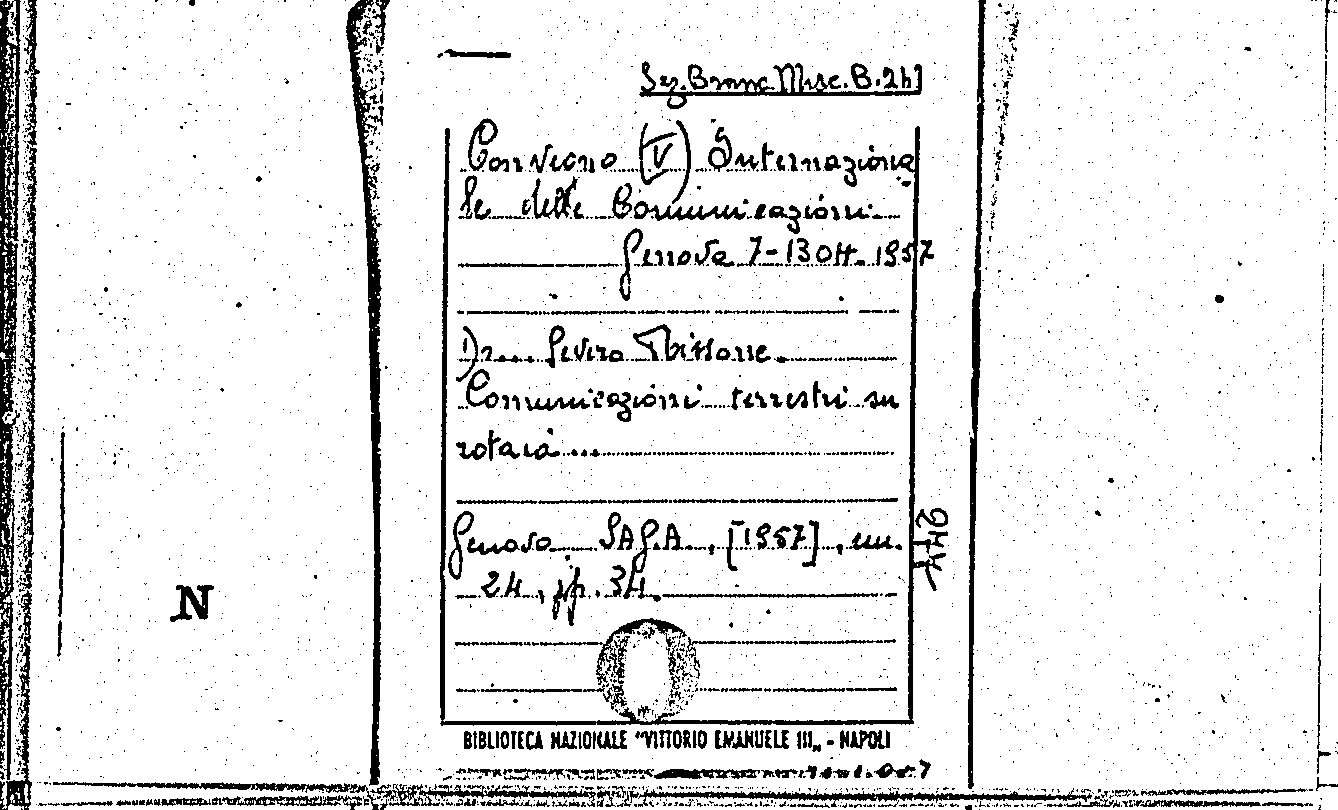 Sez. Branc. Misc. B. 2h]
Convegno (V) Internaziona
le delle Comunicazioni.
Genova 7-13 Ott. 1957
Dr... Severo
Comunicazioni terrestri su
rotaia...
Genova SAGA, [1957], cm.
24, pp. 34.
N
BIBLIOTECA NAZIONALE "VITTORIO EMANUELE III„ - NAPOLI